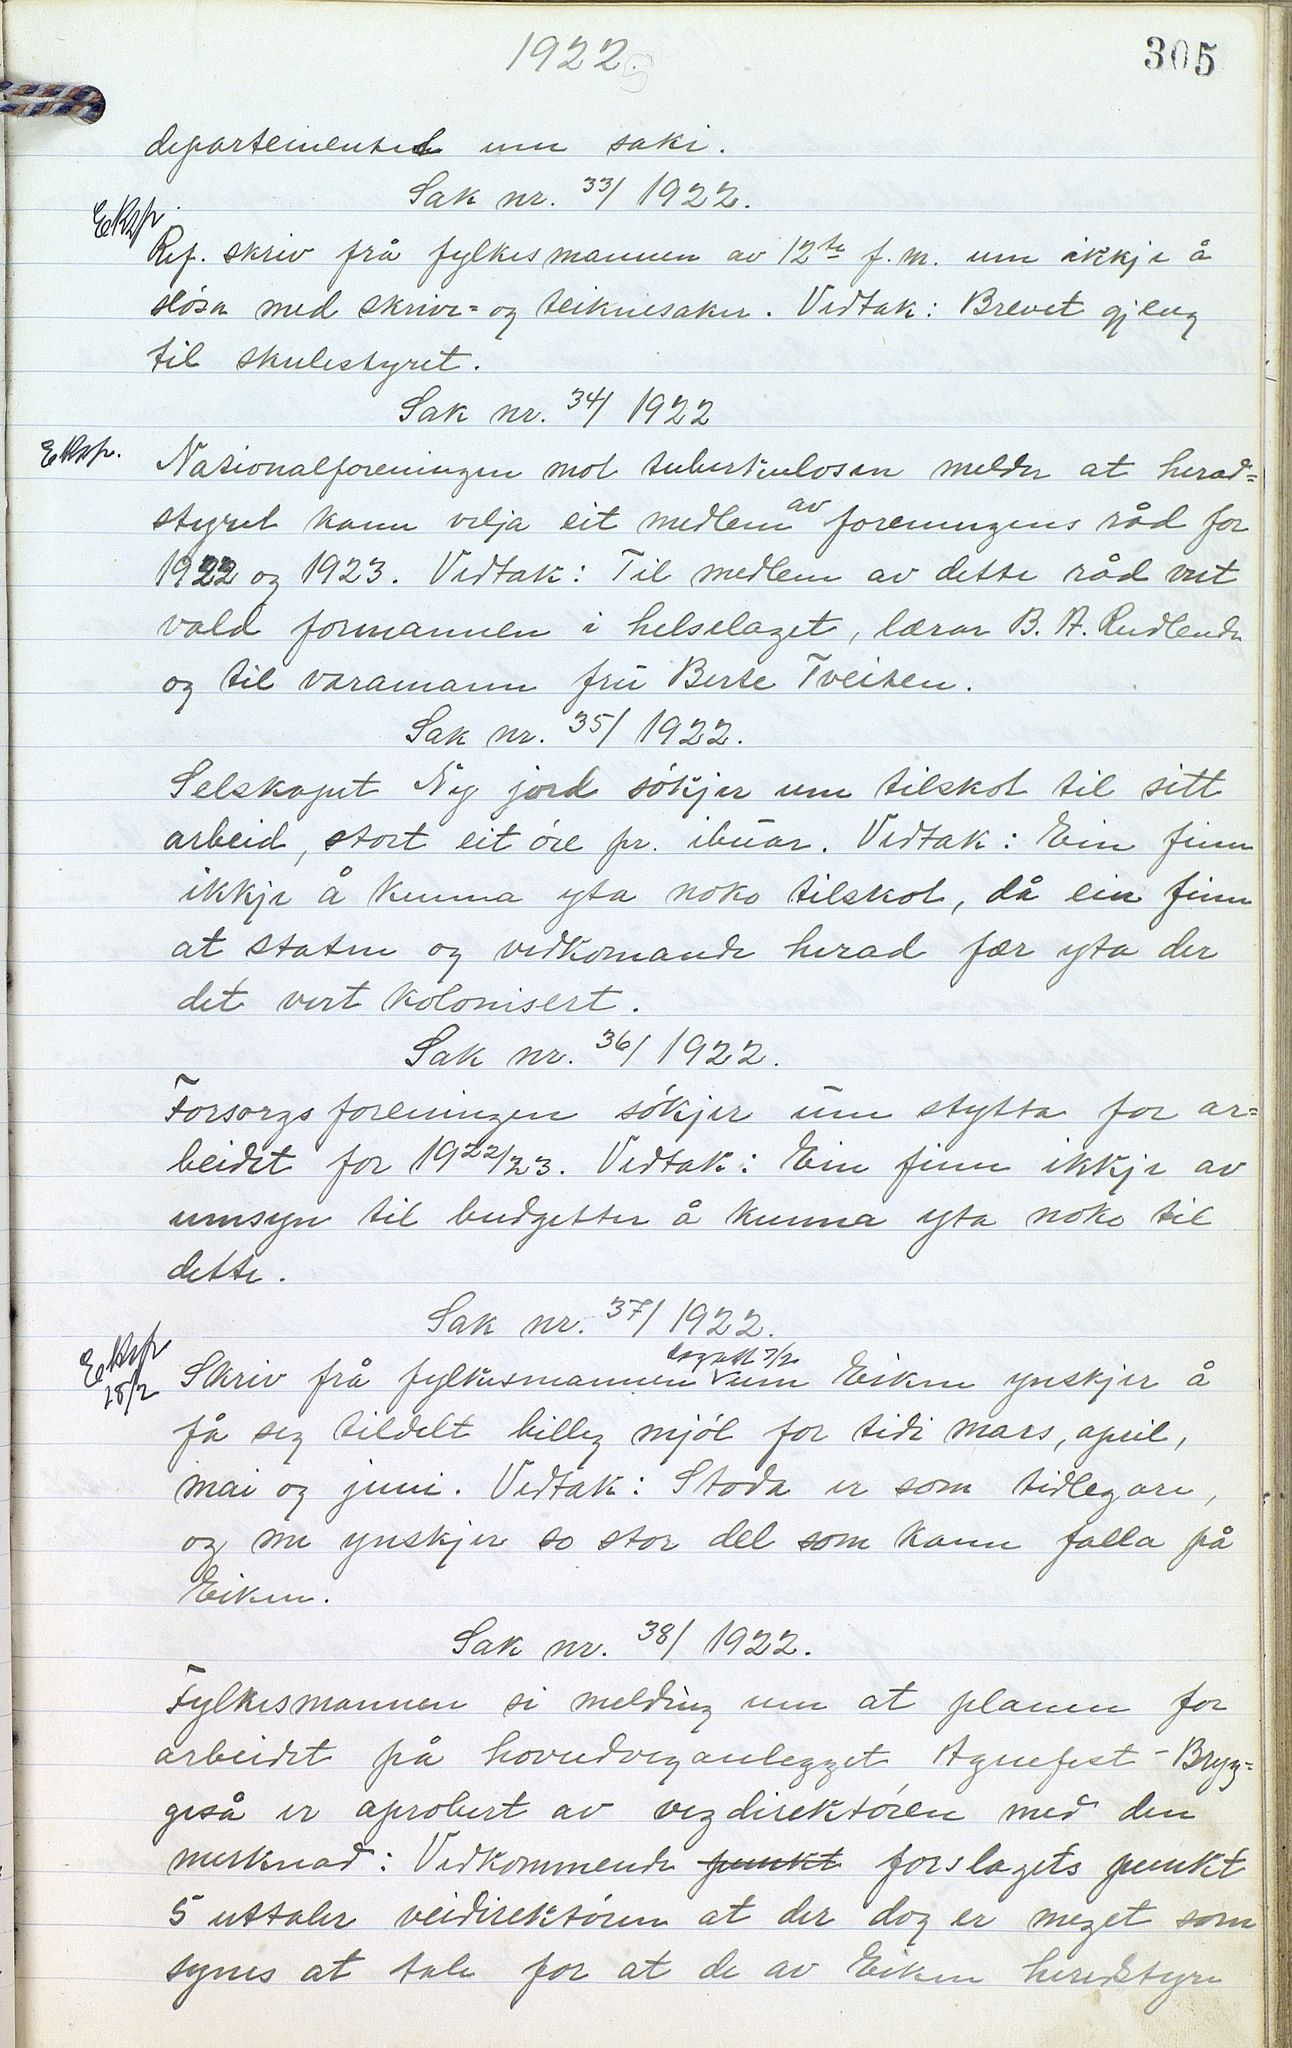 1922.
305
departementet um saki.
Sak nr. 33/1922.
Eksp.
Ref. skriv frå fylkesmannen av 12te f.m. um ikkje å
slösa med skrive= og teiknesaker. Vedtak: Brevet gjeng
til skulestyret.
Sak nr. 34/1922
Eksp. Nationalforeningen mot tuberkulosen melder at herad=
styret kann velja eit medlem av foreningens råd for
1922 og 1923. Vedtak: Til medlem av dette råd vert
vald formannen i helselaget, lærar B. A. Rudlende
og til varamann fru Berte Tveiten.
Sak nr. 35/1922.
Selskapet Ny jord sökjer um tilskot til sitt
arbeid, stort eit öre pr. ibuar. Vedtak: Ein finn
ikkje å kunna yta noko tilskot, då ein finn
at staten og vedkomande herad fær yta der
det vert kolonisert.
Sak nr. 36/1922.
Forsorgsforeningen sökjer um stytta for ar=
beidet for 1922/23. Vedtak: Ein finn ikkje av
umsyn til budgetter å kunna yta noko til
dette.
Sak nr. 37/1922.
Eksp 28/2
Skriv frå fylkesmannen dagsett 7/2 um Eiken ynskjer å
få seg tildelt billeg mjöl for tidi mars, april,
mai og juni. Vedtak: Stoda er som tidlegare,
og me ynskjer so stor del som kann falla på
Eiken.
Sak nr. 38/1922.
Fylkesmannen si melding um at planen for
arbeidet på hovudveganlegget Agnefest - Bryg=
geså er aprobert av vegdirektören med den
merknad: Vedkommende punkt forslagets punkt
5 uttaler veidirektören at der dog er meget som
synes at tale for at de av Eiken heredstyre